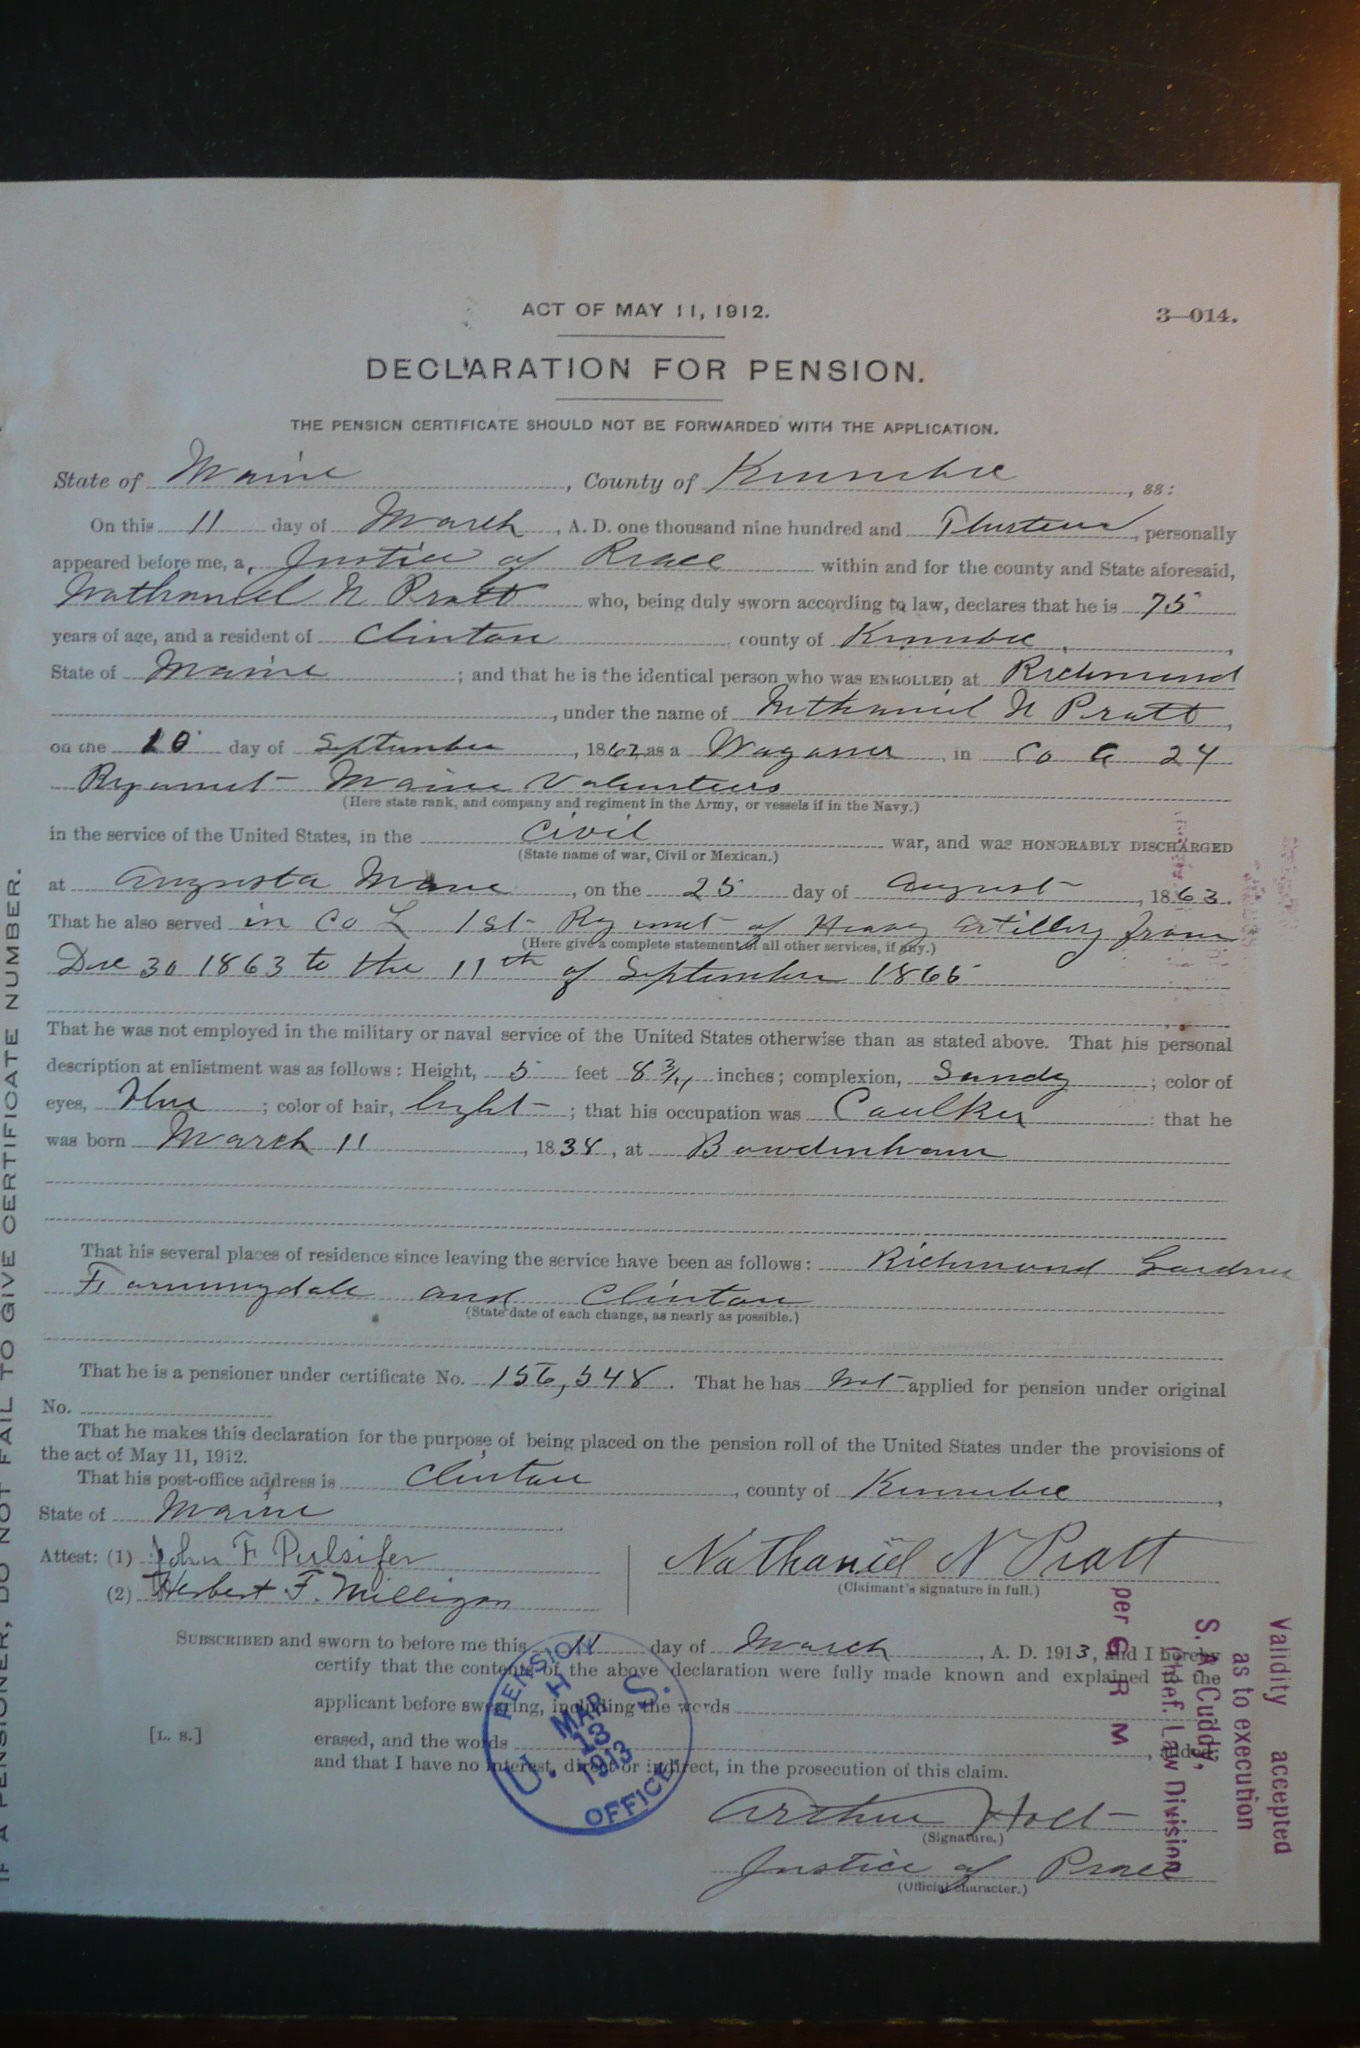 ACT OF MAY 11, 1912.
3—014.
DECLARATION FOR PENSION.
THE PENSION CERTIFICATE SHOULD NOT BE FORWARDED WITH THE APPLICATION.
State of Maine, County of Kennebec, ss:
On this 11 day of March, A. D. one thousand nine hundred and Thirteen, personally
appeared before me, a, Justice of Peace within and for the county and State aforesaid,
Nathaniel N Pratt who, being duly sworn according to law, declares that he is 75
years of age, and a resident of Clinton county of Kennebec,
State of Maine; and that he is the identical person who was ENROLLED at Richmond
, under the name of Nathaniel N Pratt,
on the 10 day of September, 1862, as a Wagoner, in Co G 24
Regament Maine Volunteers
(Here state rank, and company and regiment in the Army, or vessels if in the Navy.)
in the service of the United States, in the Civil war, and was HONORABLY DISCHARGED
(State name of war, Civil or Mexican.)
at Augusta Maine, on the 25 day of August, 1863.
That he also served in Co L 1st Regment of Heavy Artillery from
(Here give a complete statement of all other services, if any.)
Dec 30 1863 to the 11th of September 1865
That he was not employed in the military or naval service of the United States otherwise than as stated above. That his personal
description at enlistment was as follows: Height, 5 feet 8 3/4 inches; complexion, Sandy; color of
eyes, blue; color of hair, light; that his occupation was Caulker; that he
was born March 11, 1838, at Bowdenham
That his several places of residence since leaving the service have been as follows: Richmond Gardner
Farmingdale and Clinton
(State date of each change, as nearly as possible.)
That he is a pensioner under certificate No. 156,548. That he has not applied for pension under original
No.
That he makes this declaration for the purpose of being placed on the pension roll of the United States under the provisions of
the act of May 11, 1912.
That his post-office address is Clinton, county of Kennebec,
State of Maine
Attest: (1) John F Pulsifer
(2) Herbert F. Milligan
Nathaniel N Pratt
(Claimant's signature in full.)
SUBSCRIBED and sworn to before me this 11 day of March, A. D. 1913, and I hereby
certify that the contents of the above declaration were fully made known and explained to the
applicant before swearing, including the words
[L. S.]
erased, and the words, added;
and that I have no interest, direct or indirect, in the prosecution of this claim.
Arthur Holt
(Signature.)
Justice of Peace
(Official character.)
U. S. PENSION OFFICE
MAR
13
1913
Validity accepted
as to execution
S. A. Cuddy,
Chief. Law Division
per G R M
IF A PENSIONER, DO NOT FAIL TO GIVE CERTIFICATE NUMBER.